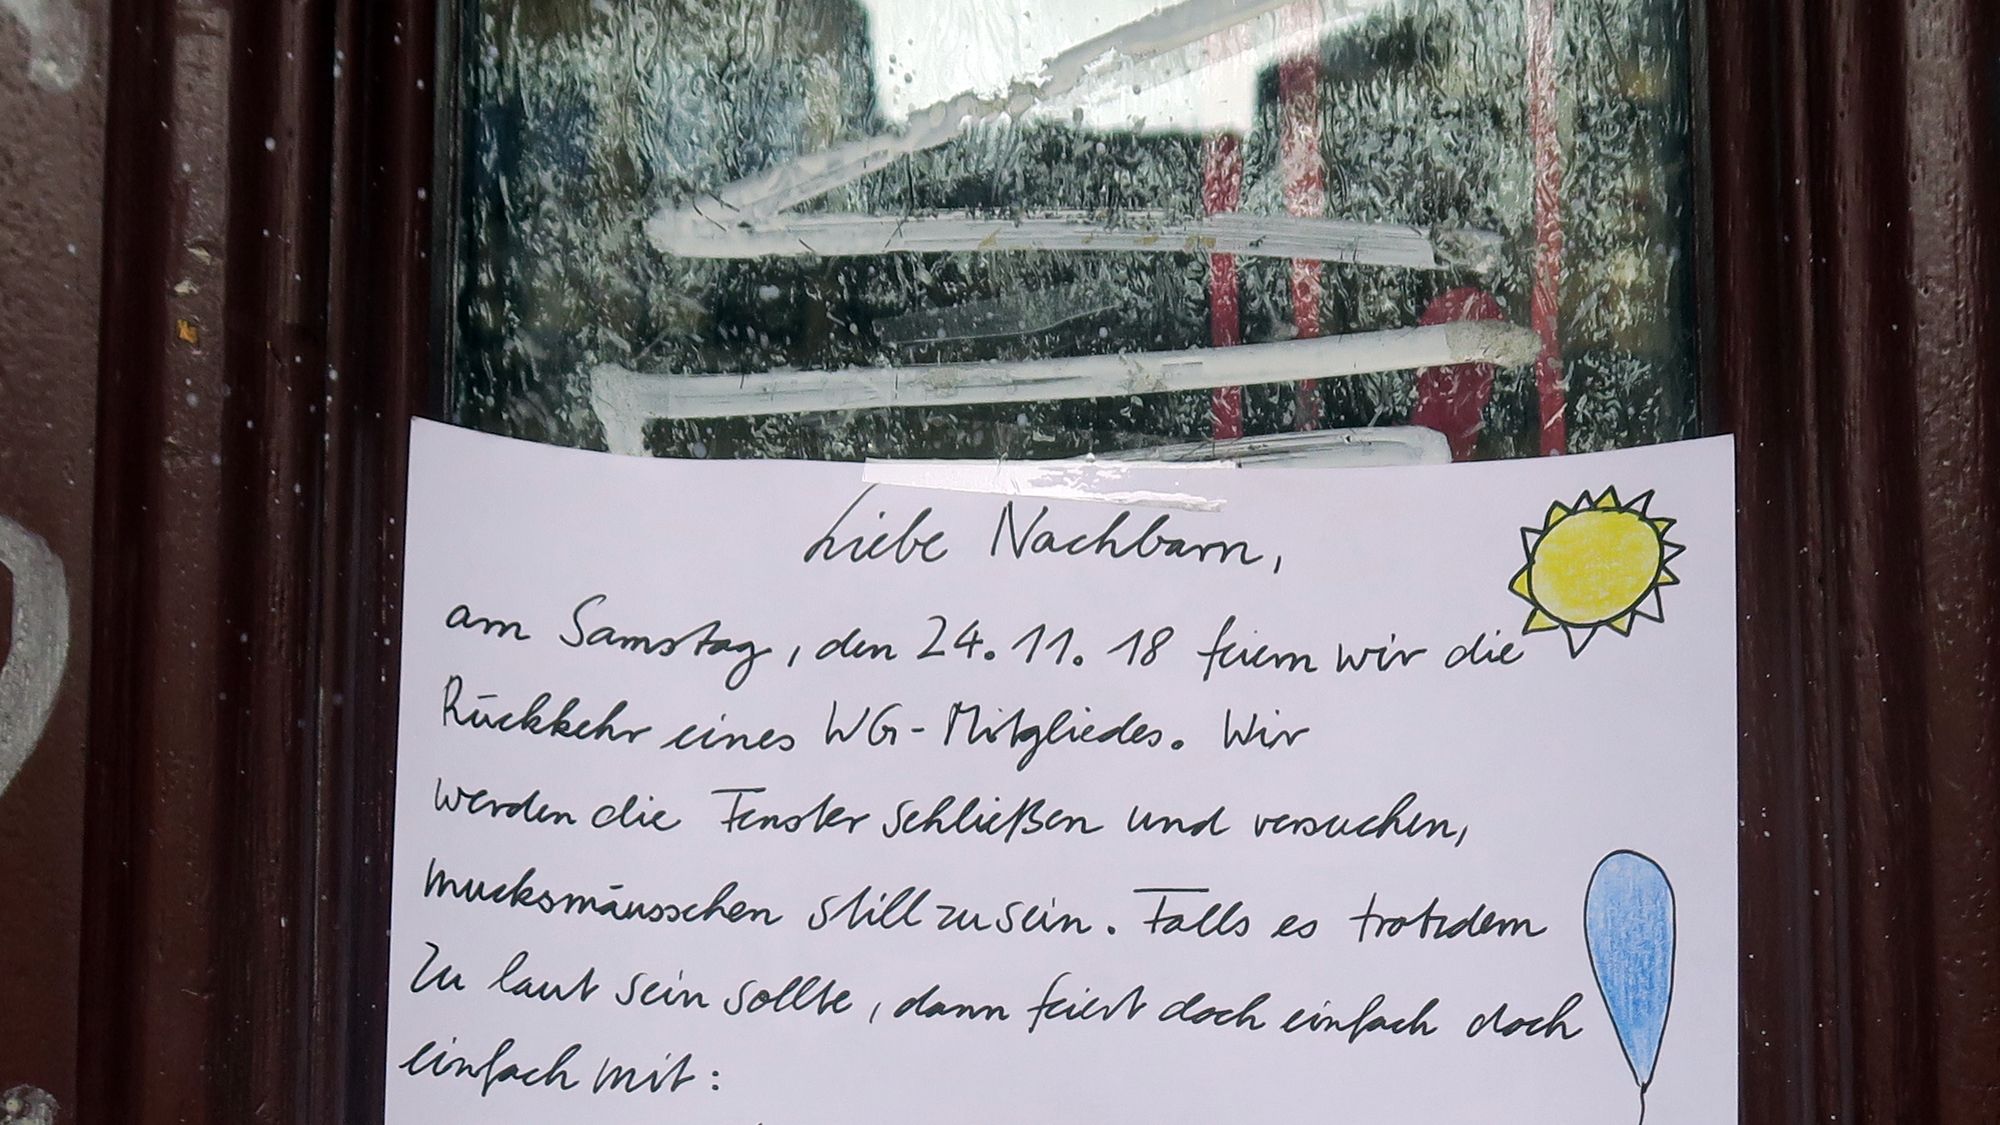 Liebe Nachbarn,
am Samstag, den 24.11.18 feiern wir die
Rückkehr eines WG-Mitgliedes. Wir
werden die Fenster schließen und versuchen,
mucksmäusschen still zu sein. Falls es trotzdem
zu laut sein sollte, dann feiert doch einfach doch
einfach mit: